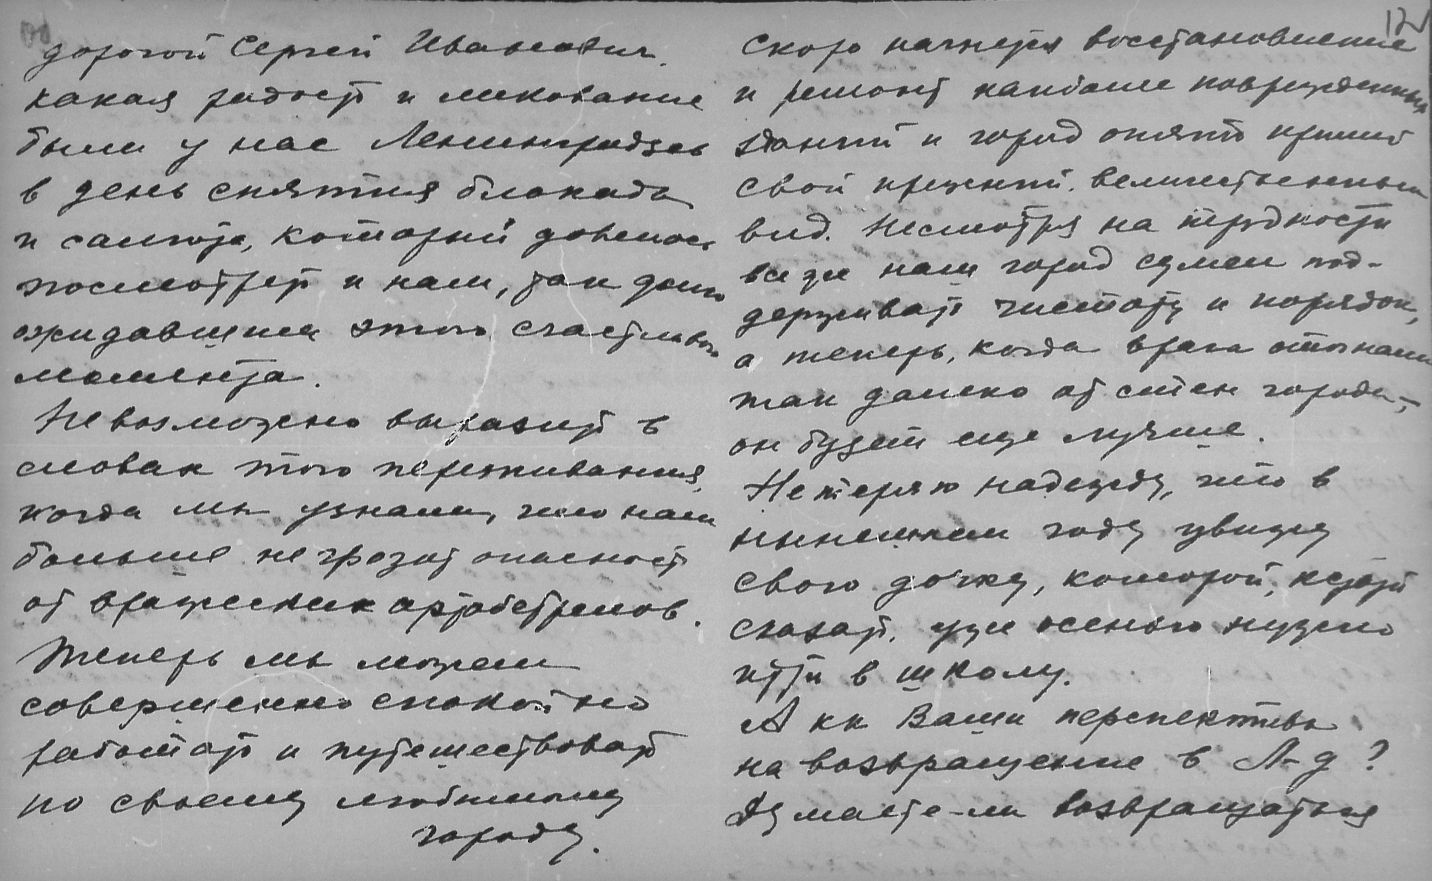 дорогой Сергей Иванович.
какая радость и ликование
были у нас Ленинградцев
в день снятия блокады
и салюта, который довелось
посмотреть и нам, так долго
ожидавшим этого счастливого
момента.
Невозможно выразить в
словах того переживания,
когда мы узнали, что нам
больше не грозит опасность
от вражеских артобстрелов.
Теперь мы можем
совершенно спокойно
работать и путешествовать
по своему любимому
городу.
12
Скоро начнется восстановление
и ремонт наиболее поврежденных
зданий и город опять примет
свой прежний величественный
вид. Несмотря на трудности
все же наш город сумел под-
держивать чистоту и порядок,
а теперь, когда врага отогнали
так далеко от стен города,-
он будет еще лучше.
Не теряю надежды, что в
нынешнем году увижу
свою дочку, которой, кстати
сказать, уже осенью нужно
итти в школу.
А кк Ваши перспективы
на возвращение в Л-д?
Думаете-ли возвращаться